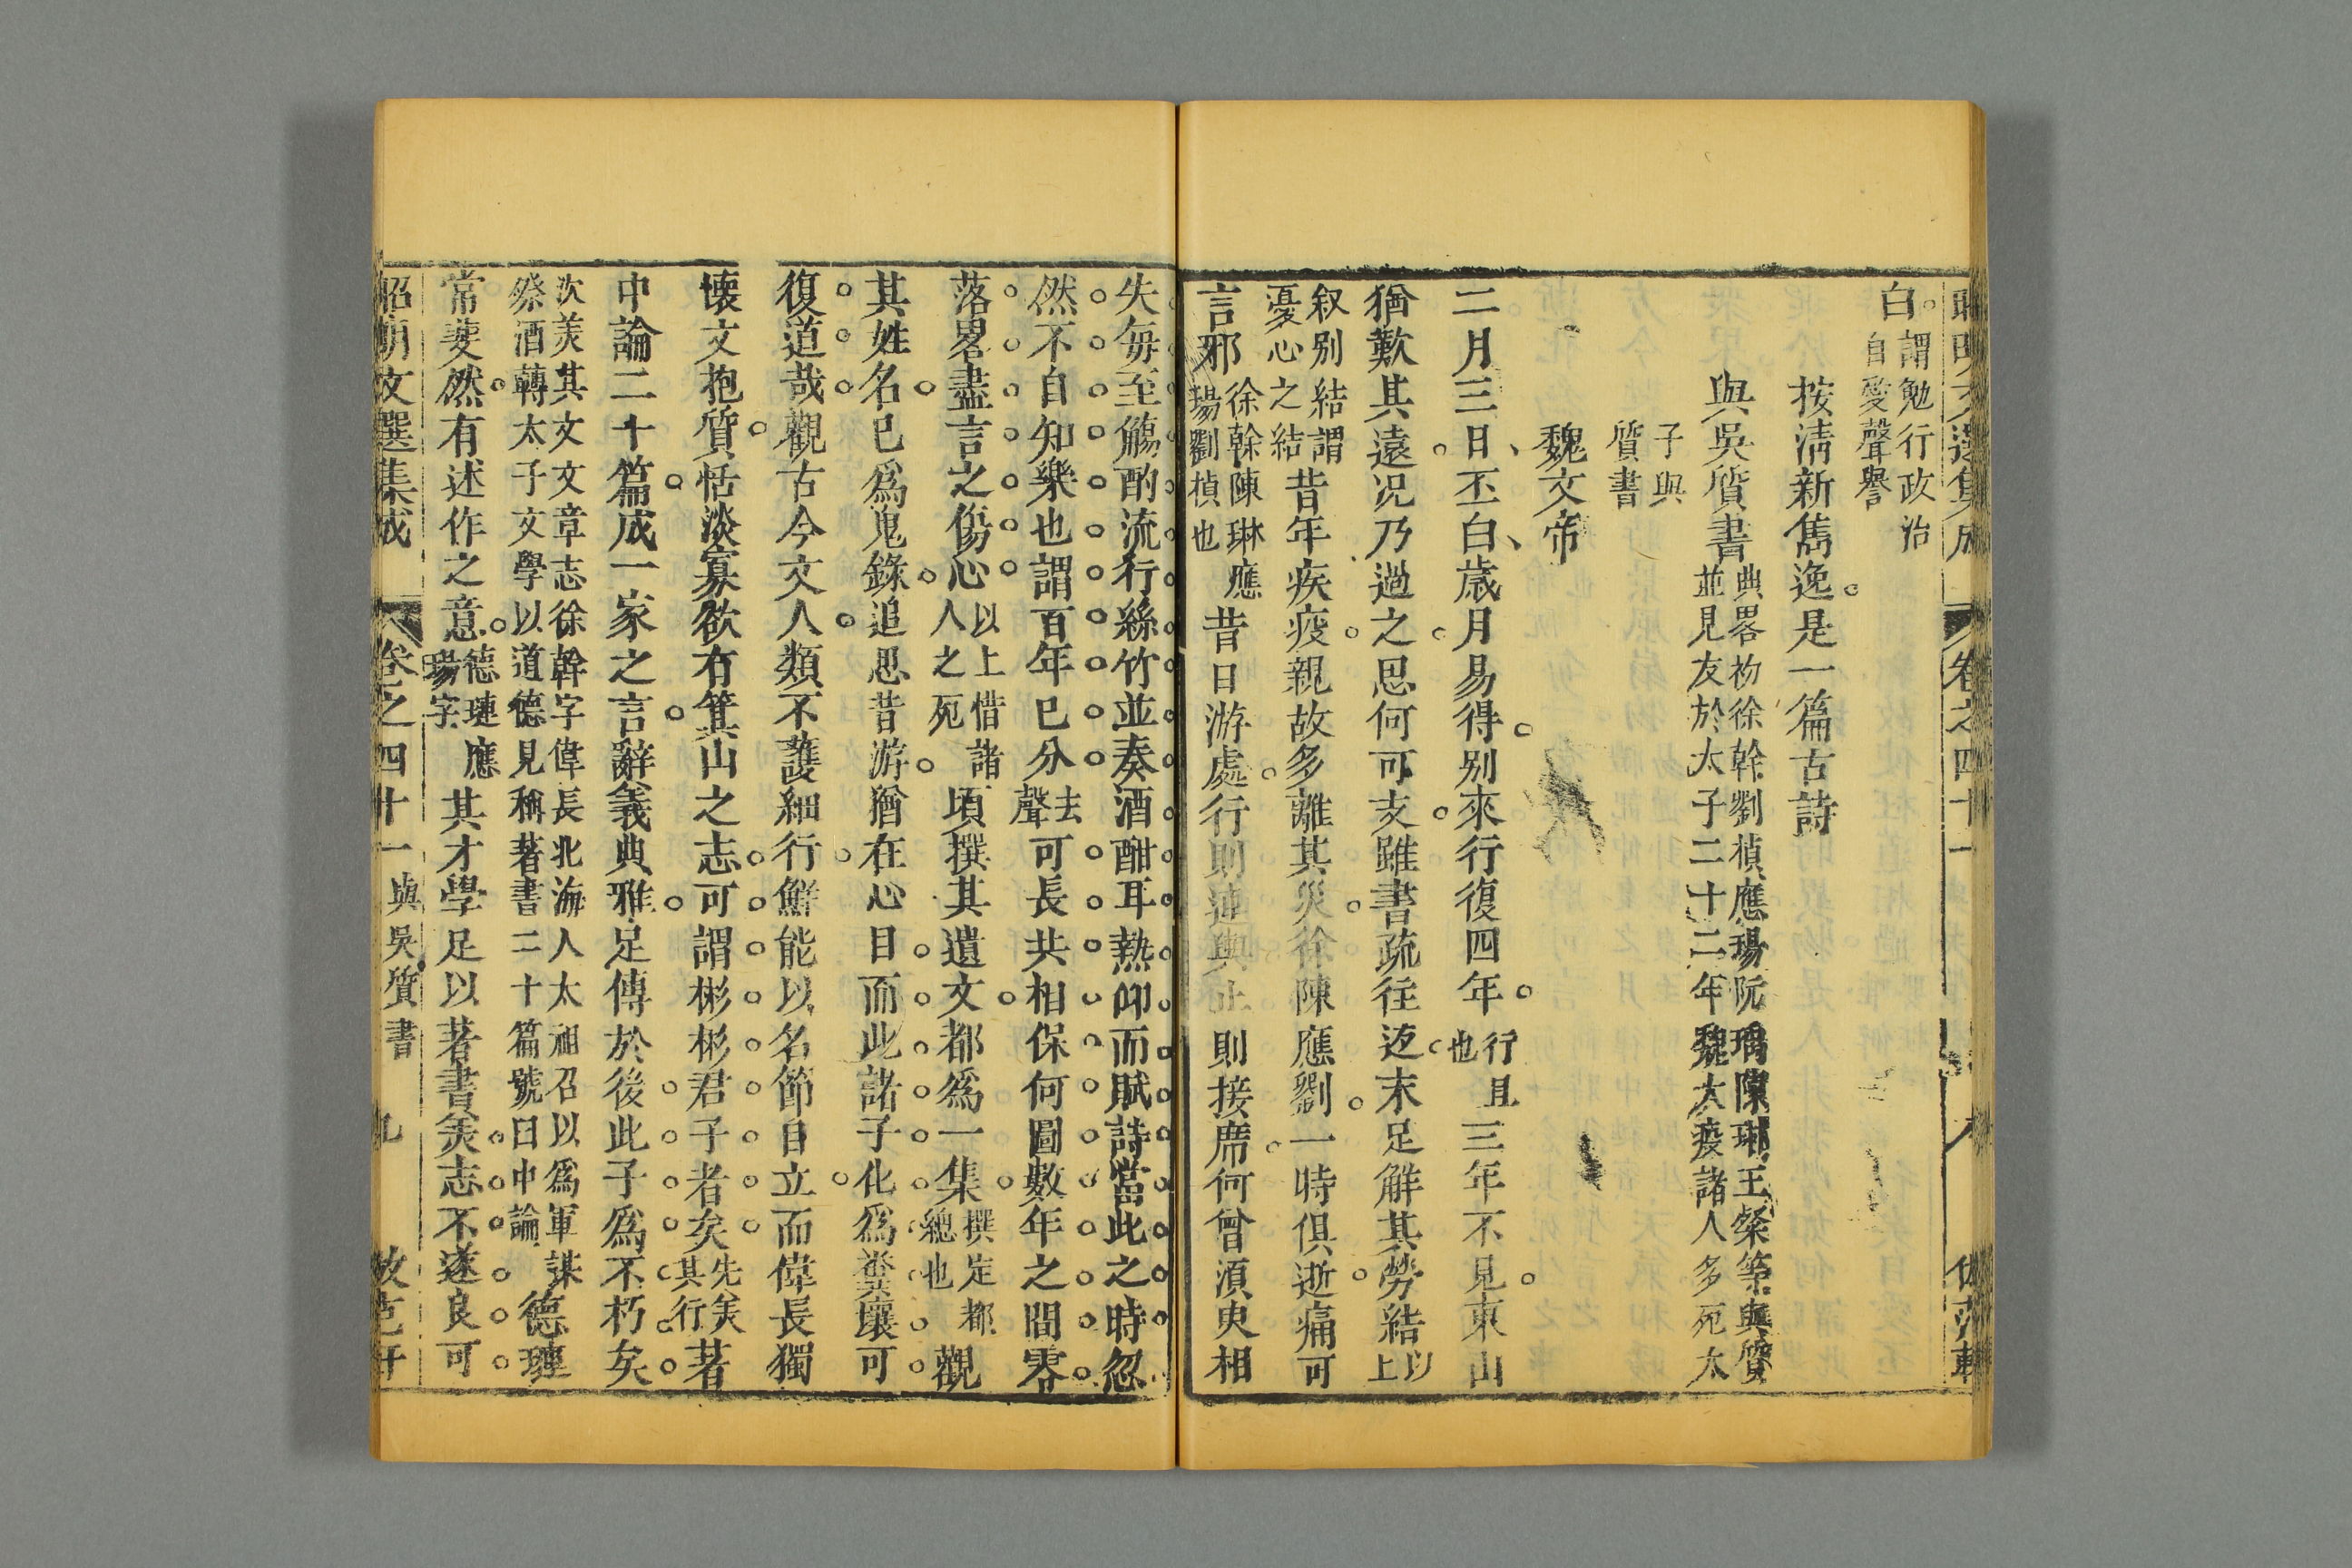 昭明文選集成 卷之四十一 八
白謂勉行政治自愛聲譽
按淸新雋逸是一篇古詩
與吳質書典畧初徐幹劉楨應瑒阮瑀陳琳王粲等與質並見友於太子二十二年魏大疫諸人多死太
子與質書
魏文帝
二月三日丕白歲月易得別來行復四年行且也三年不見東山
猶歎其遠况乃過之思何可支雖書疏往返未足解其勞結以上
叙別結謂憂心之結昔年疾疫親故多離其災徐陳應劉一時俱逝痛可
言邪徐幹陳琳應瑒劉楨也昔日游處行則連輿止則接席何曾湏臾相
失每至觴酌流行絲竹並奏酒酣耳熱仰而賦詩當此之時忽
然不自知樂也謂百年已分去聲可長共相保何圖數年之間零
落畧盡言之傷心以上惜諸人之死頃撰其遺文都爲一集撰定都總也觀
其姓名已爲鬼錄追思昔游猶在心目而此諸子化爲糞壤可
復道哉觀古今文人類不護細行鮮能以名節自立而偉長獨
懐文抱質恬淡寡欲有箕山之志可謂彬彬君子者矣先羙其行著
中論二十篇成一家之言辭義典雅足傳於後此子爲不朽矣
次羙其文文章志徐幹字偉長北海人太祖召以爲軍謀祭酒轉太子文學以道德見稱著書二十篇號曰中論德璉
常斐然有述作之意德璉應瑒字其才學足以著書羙志不遂良可
昭明文選集成 卷之四十一 與吳質書 九